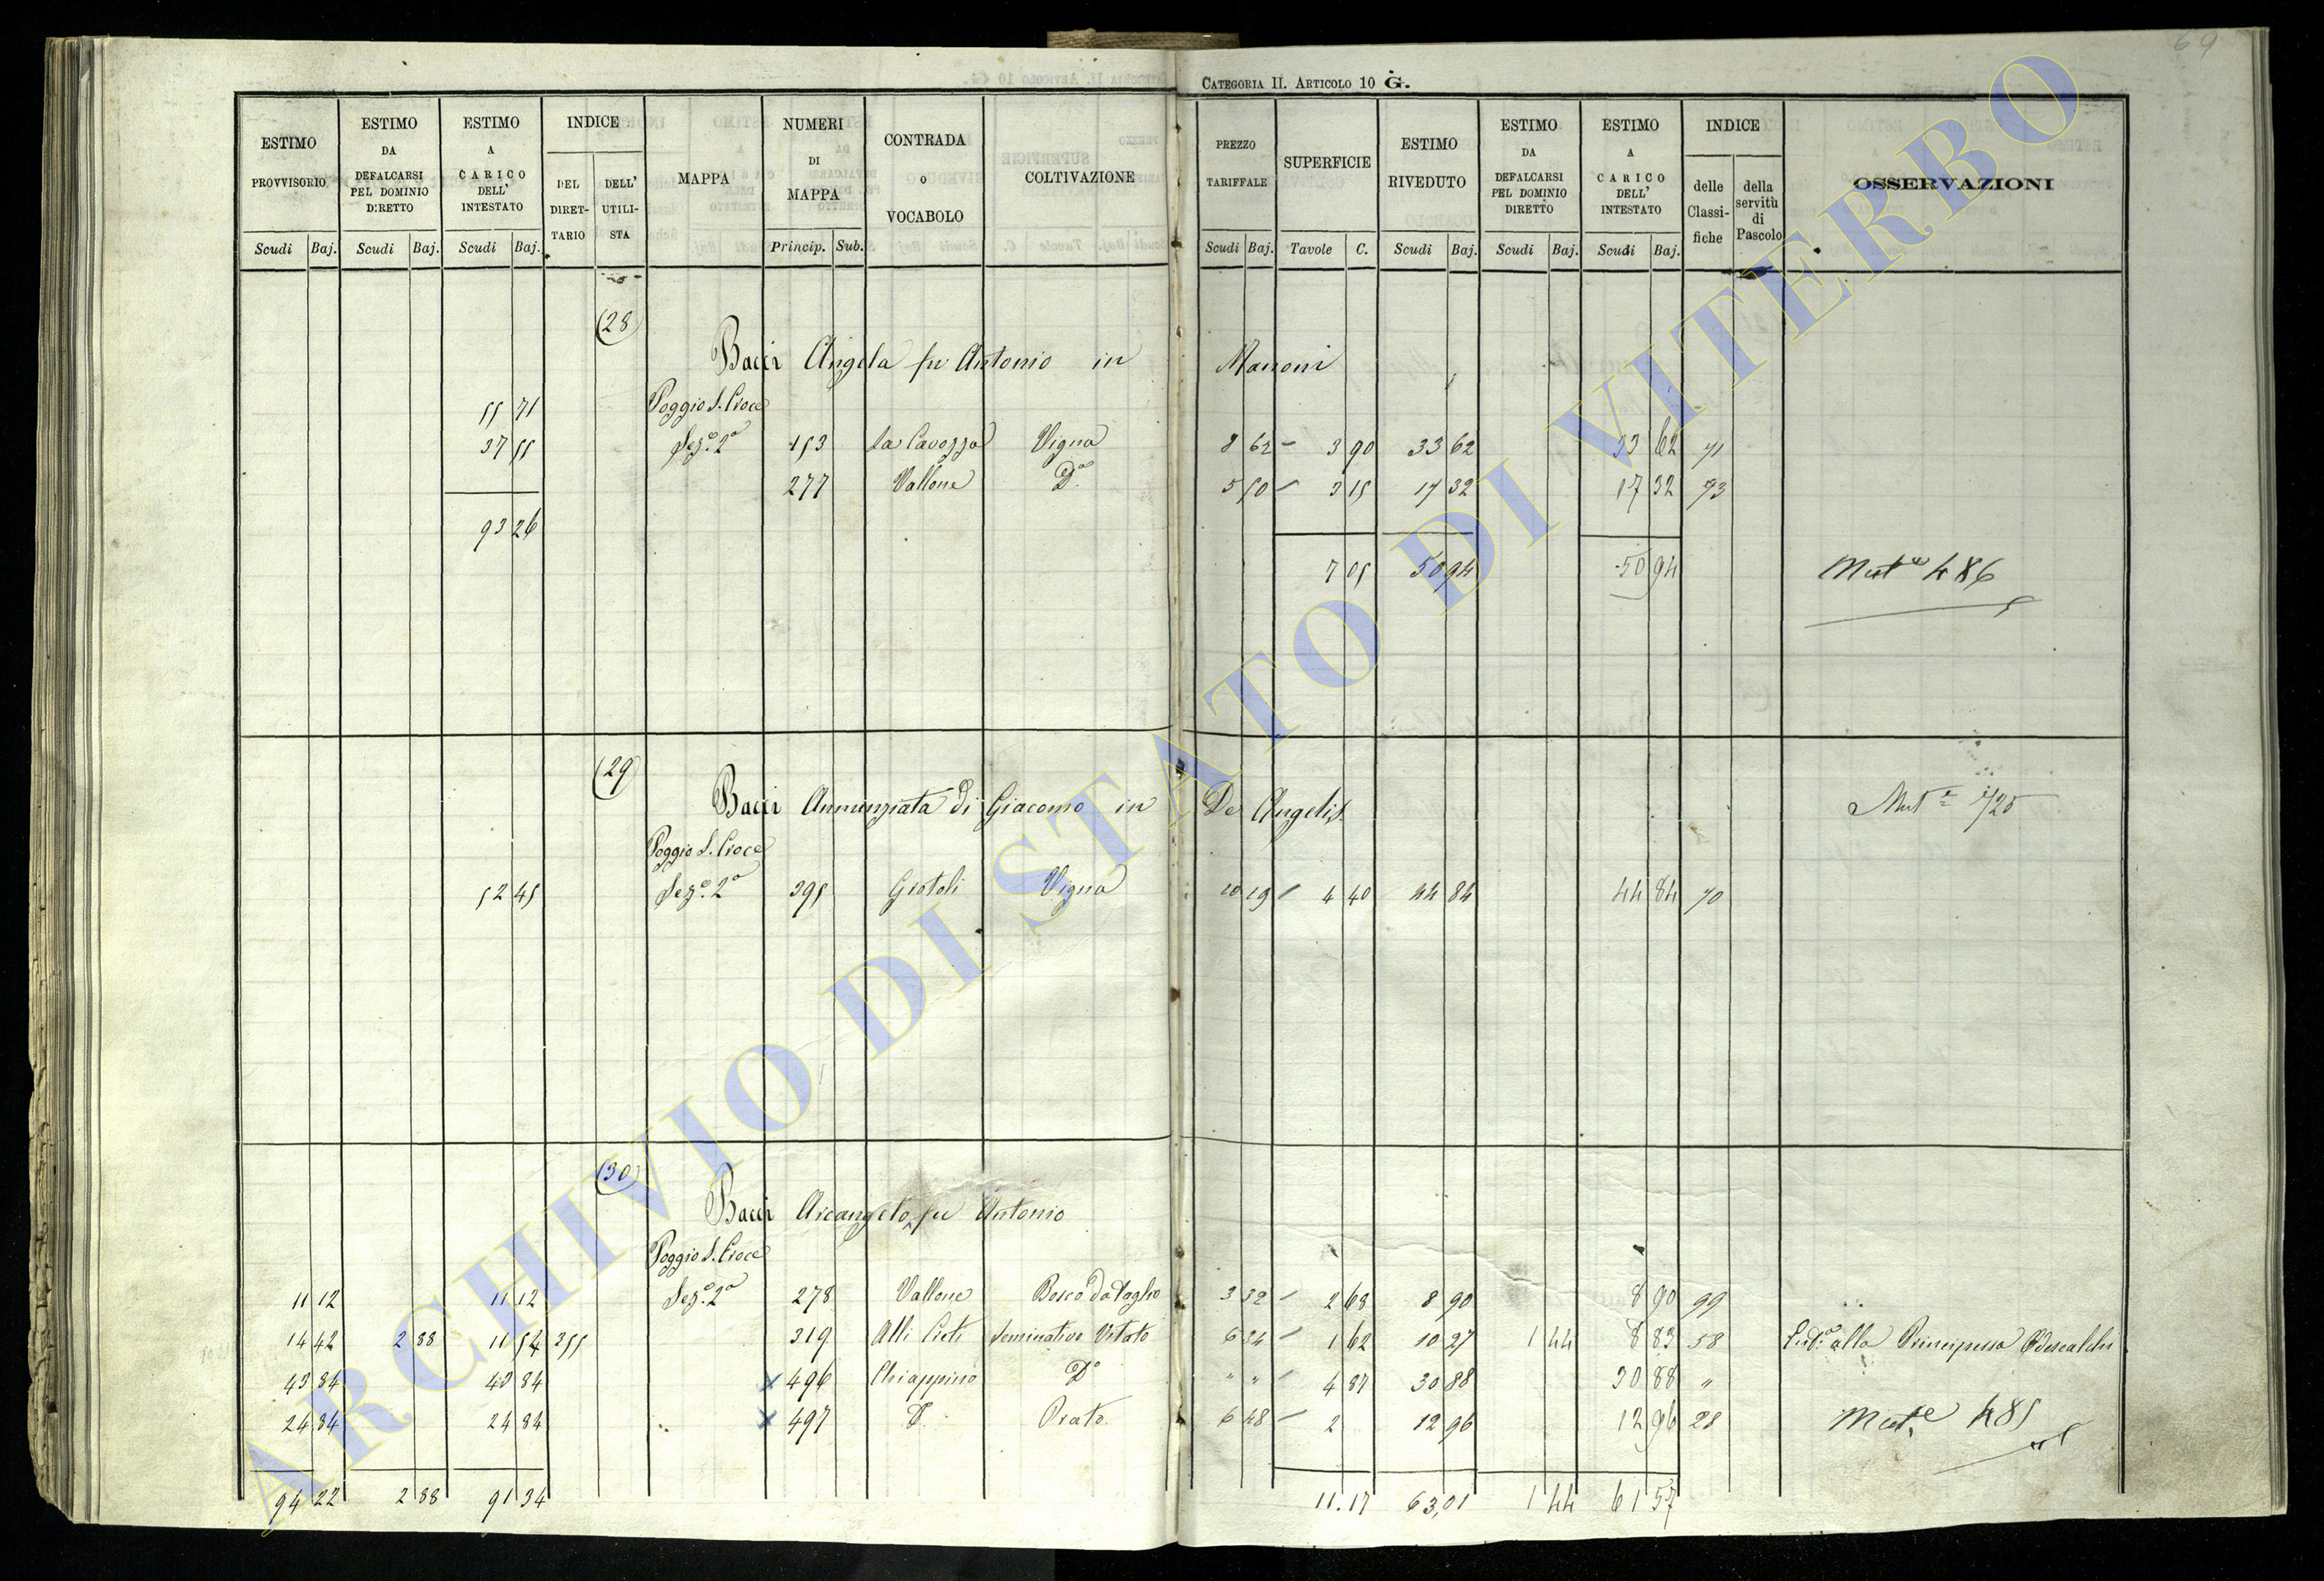 69
CATEGORIA II. ARTICOLO 10 G.
ESTIMO PROVVISORIO Scudi Baj.
ESTIMO DA DEFALCARSI PEL DOMINIO DIRETTO Scudi Baj.
ESTIMO A CARICO DELL' INTESTATO Scudi Baj.
INDICE DEL DIRET-TARIO DELL' UTILI-STA
MAPPA
NUMERI DI MAPPA Princip. Sub.
CONTRADA o VOCABOLO
COLTIVAZIONE
PREZZO TARIFFALE Scudi Baj.
SUPERFICIE Tavole C.
ESTIMO RIVEDUTO Scudi Baj.
ESTIMO DA DEFALCARSI PEL DOMINIO DIRETTO Scudi Baj.
ESTIMO A CARICO DELL' INTESTATO Scudi Baj.
INDICE delle Classi-fiche della servitù di Pascolo
OSSERVAZIONI
(28)
Bacci Angela fu Antonio in Manoni
55 71 Poggio S. Croce
37 55 Sez.e 2a 153 La Cavozza Vigna 8 62 3 90 33 62 33 62 71
277 Vallone Do 5 50 3 15 17 32 17 32 73
93 26
7 05 50 94 50 94 Mut.e 486
(29)
Bacci Annunziata di Giacomo in De Angelis Mut.e 1/25
Poggio S. Croce
52 45 Sez.e 2a 395 Grotoli Vigna 10 19 4 40 44 84 44 84 70
(30)
Bacci Arcangelo fu Antonio
Poggio S. Croce
11 12 11 12 Sez.e 2a 278 Vallone Bosco da Taglio 3 32 2 68 8 90 8 90 99
14 42 2 88 11 54 255 319 Alli Creti Seminativo Vitato 6 34 1 62 10 27 1 44 8 83 58 alla Principessa Odescalchi
43 84 43 84 x 496 Chiappino Do " " 4 87 30 88 30 88 "
24 84 24 84 x 497 D. Prato 6 48 2 12 96 12 96 28 Mut.e 485
94 22 2 88 91 34 11.17 63,01 1 44 61 57
ARCHIVIO DI STATO DI VITERBO